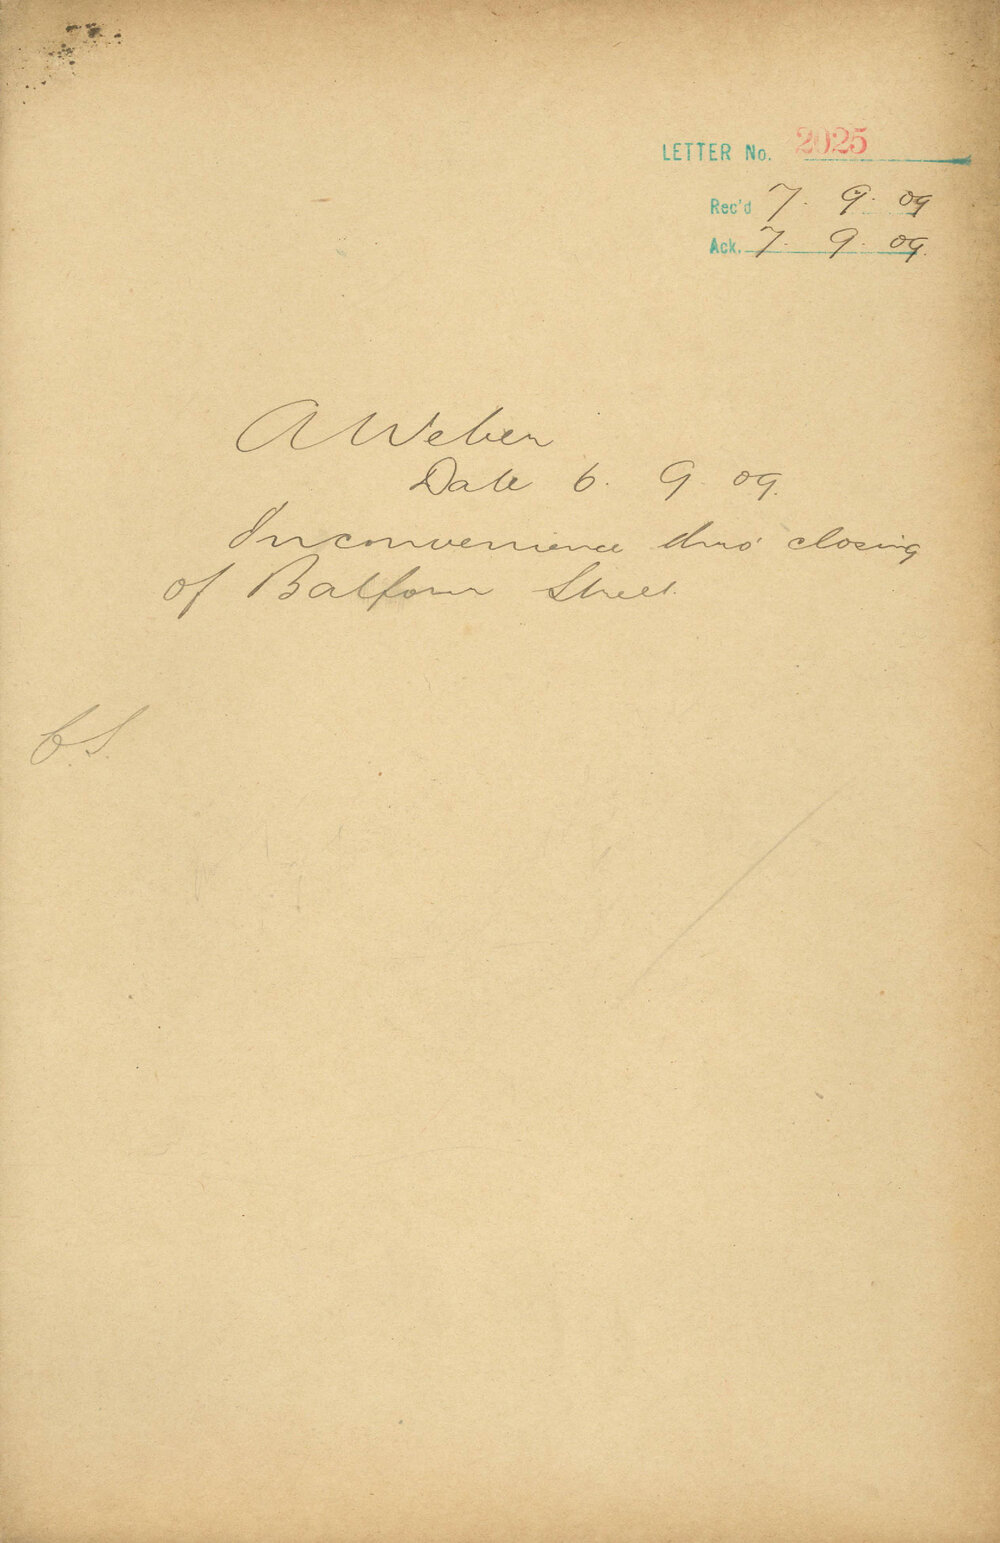 LETTER No. 2025
Rec'd 7. 9. 09
Ack. 7. 9. 09.
A Weber
Date 6. 9. 09.
Inconvenience thro' closing
of Balfour Street.
C.S.